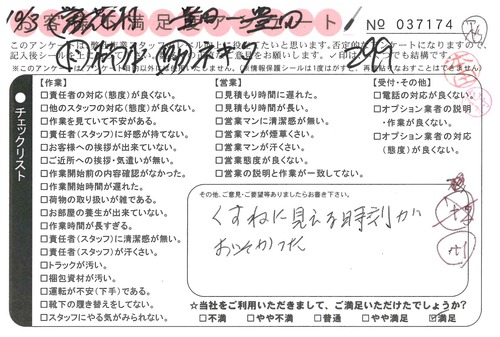 10/3
お客様満足度アンケート
№ 037174
このアンケートは
記入後シールを
※このアンケートは
チェックリスト
【作業】
□責任者の対応(態度)が良くない。
□他のスタッフの対応(態度)が良くない。
□作業を見ていて不安がある。
□責任者(スタッフ)に好感が持てない。
□お客様への挨拶が出来ていない。
□ご近所への挨拶・気遣いが無い。
□作業開始前の内容確認がなかった。
□作業開始時間が遅れた。
□荷物の取り扱いが雑である。
□お部屋の養生が出来ていない。
□作業時間が長すぎる。
□責任者(スタッフ)に清潔感が無い。
□責任者(スタッフ)が汗くさい。
□トラックが汚い。
□梱包資材が汚い。
□運転が不安(下手)である。
□靴下の履き替えをしてない。
□スタッフにやる気がみられない。
【営業】
□見積もり時間に遅れた。
□見積もり時間が長い。
□営業マンに清潔感が無い。
□営業マンが煙草くさい。
□営業マンが汗くさい。
□営業態度が良くない。
□営業の説明と作業が一致してない。
【受付・その他】
□電話の対応が良くない。
□オプション業者の説明
・作業が良くない。
□オプション業者の対応
(態度)が良くない。
その他、ご意見・ご要望等ありましたらお書き下さい。
くすねに見える時刻が
おそかった
☆当社をご利用いただきまして、ご満足いただけたでしょうか?
□不満 □やや不満 □普通 □やや満足 ☑満足